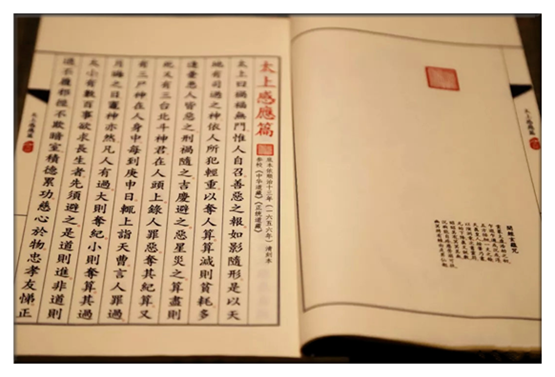 開經玄蘊咒
太上感應篇
底本依順治十三年（一六五六年）清刻本
參校《中華道藏》《正統道藏》
太上曰禍福無門惟人自召善惡之報如影隨形是以天
地有司過之神依人所犯輕重以奪人算算減則貧耗多
逢憂患人皆惡之刑禍隨之吉慶避之惡星災之算盡則
死又有三台北斗神君在人頭上錄人罪惡奪其紀算又
有三尸神在人身中每到庚申日輒上詣天曹言人罪過
月晦之日竈神亦然凡人有過大則奪紀小則奪算其過
大小有數百事欲求長生者先須避之是道則進非道則
退不履邪徑不欺暗室積德累功慈心於物忠孝友悌正
太上感應篇